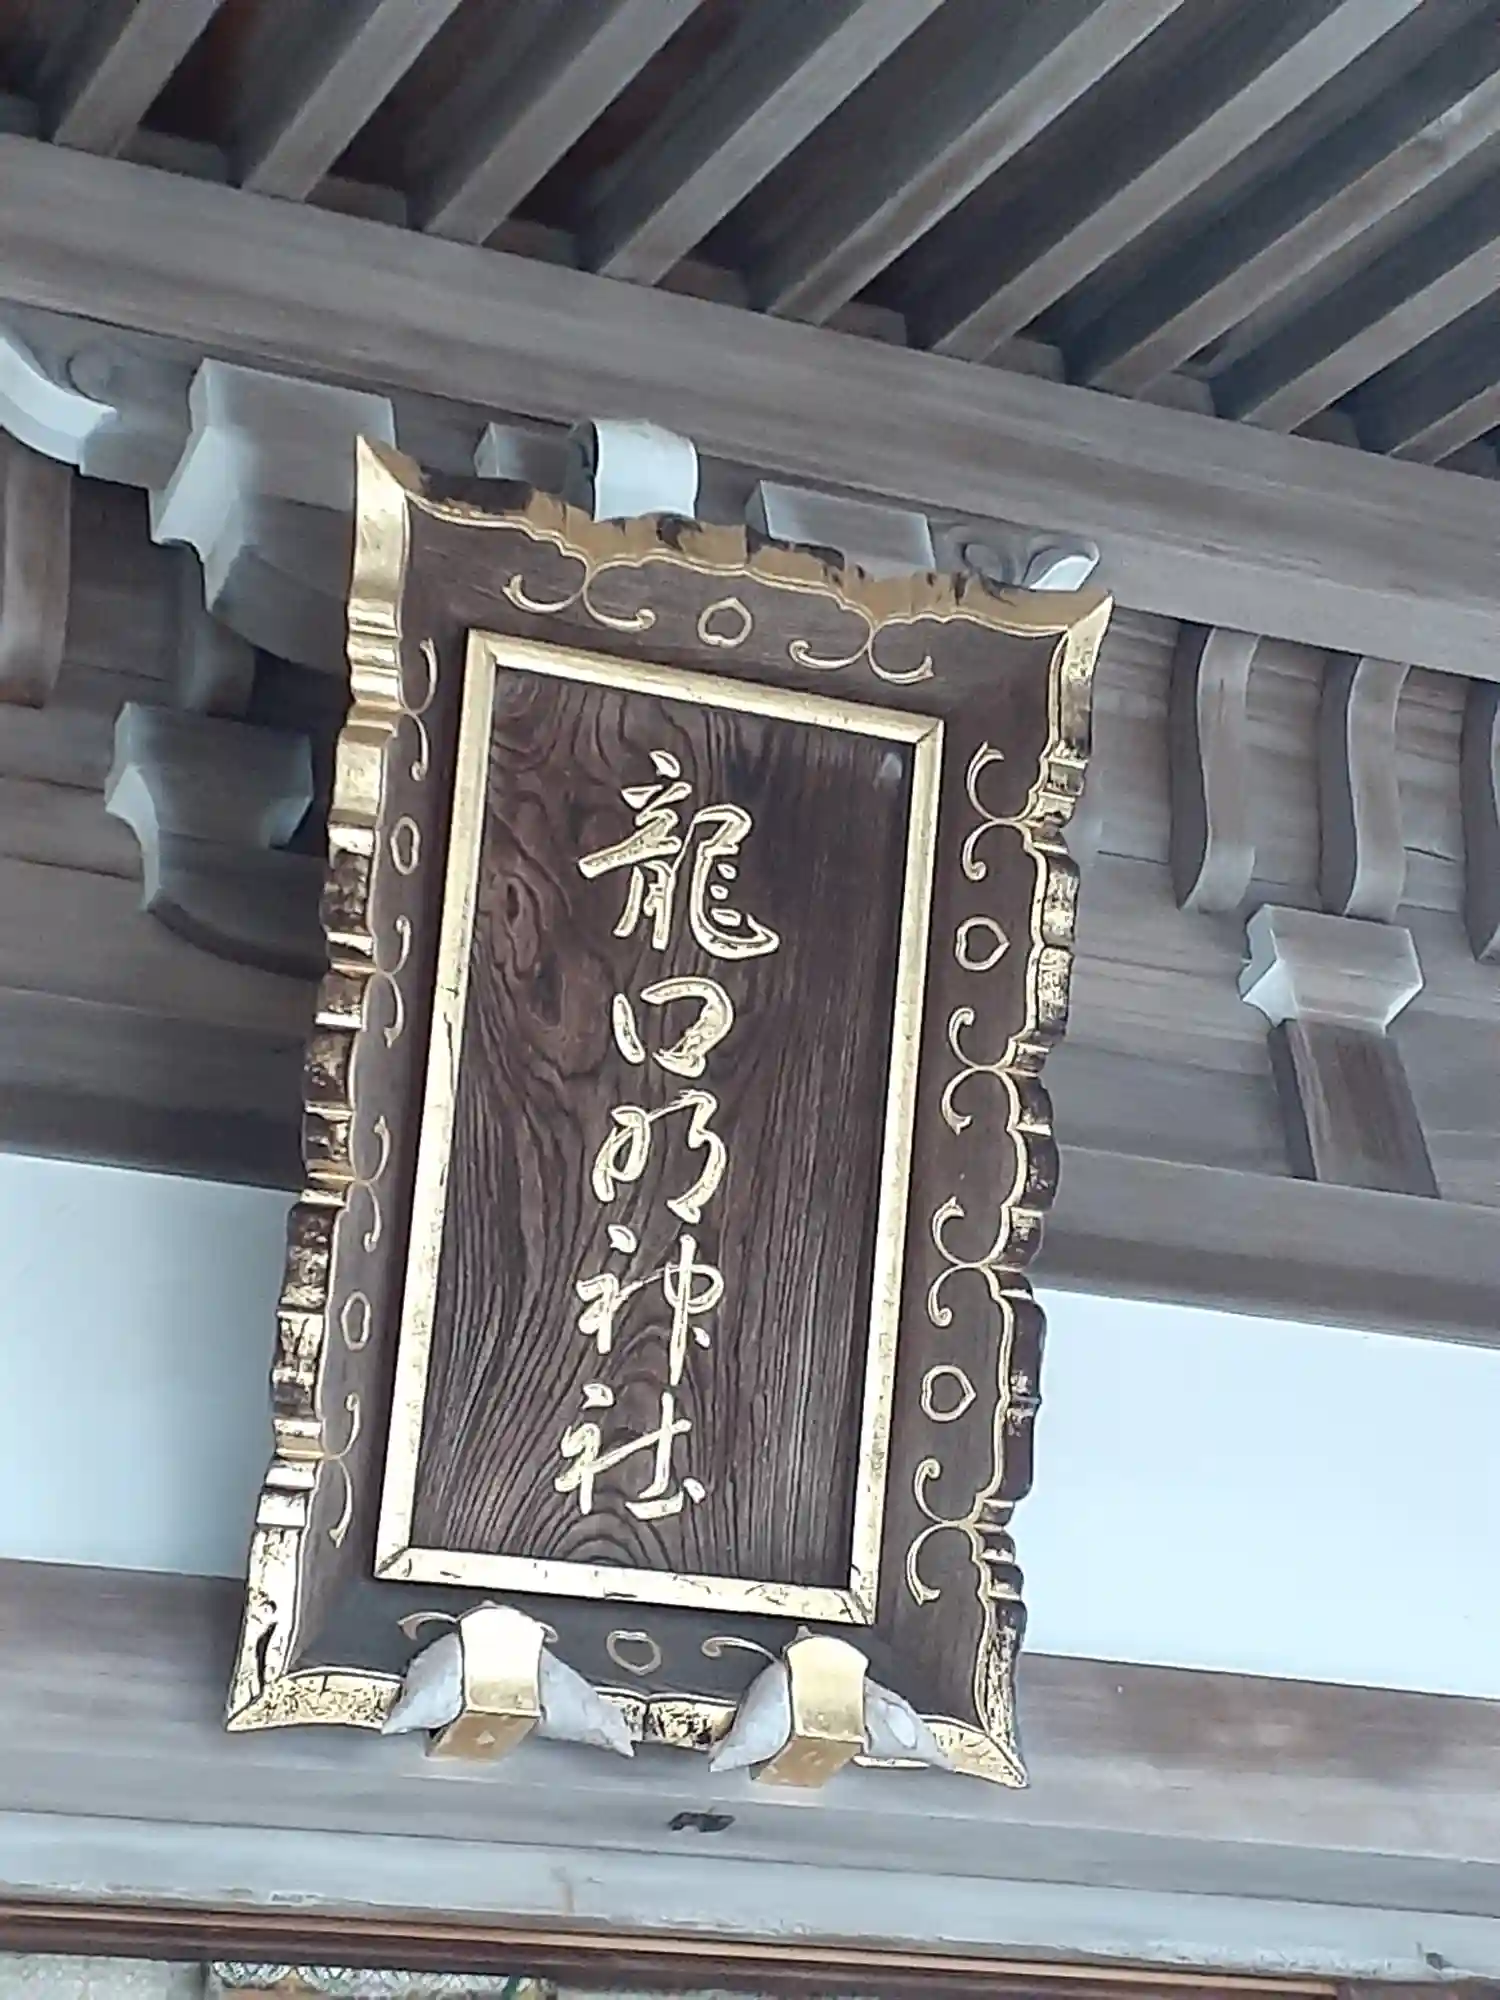 龍口明神社